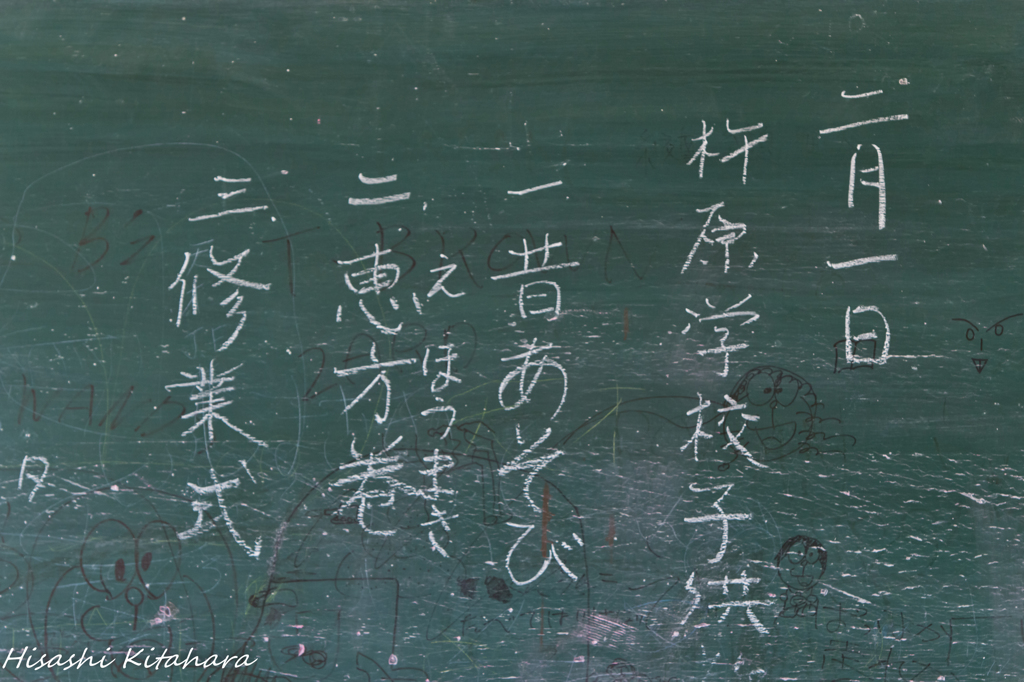 二月一日
杵原学校子供
一昔あそび
えほうまき
二、恵方巻
三、修業式
タ
Hisashi Kitahara